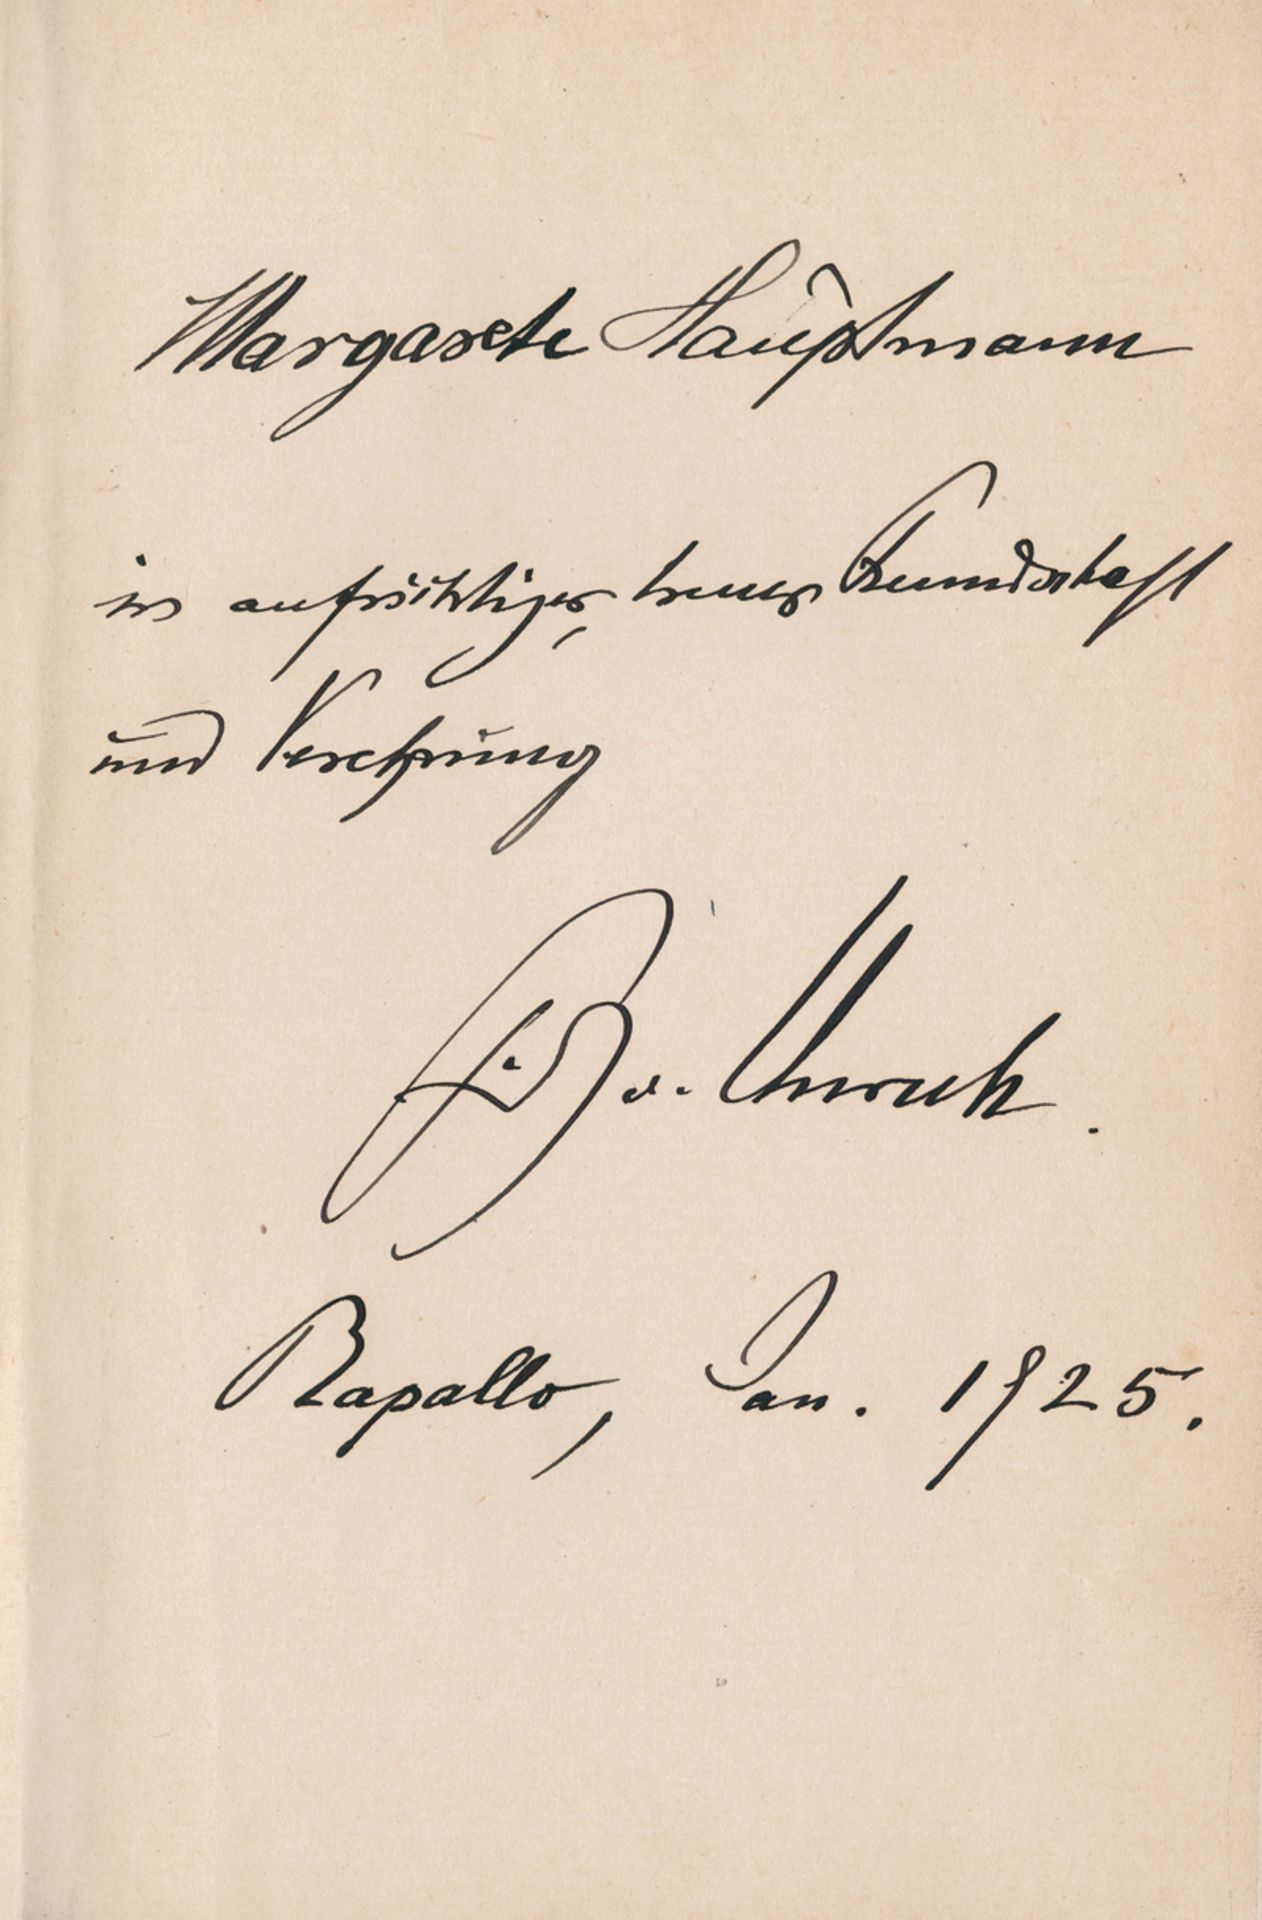 Margarete Hauptmann
in aufrichtiger, treuer Freundschaft
und Verehrung
Fritz v. Unruh.
Rapallo, Jan. 1925.